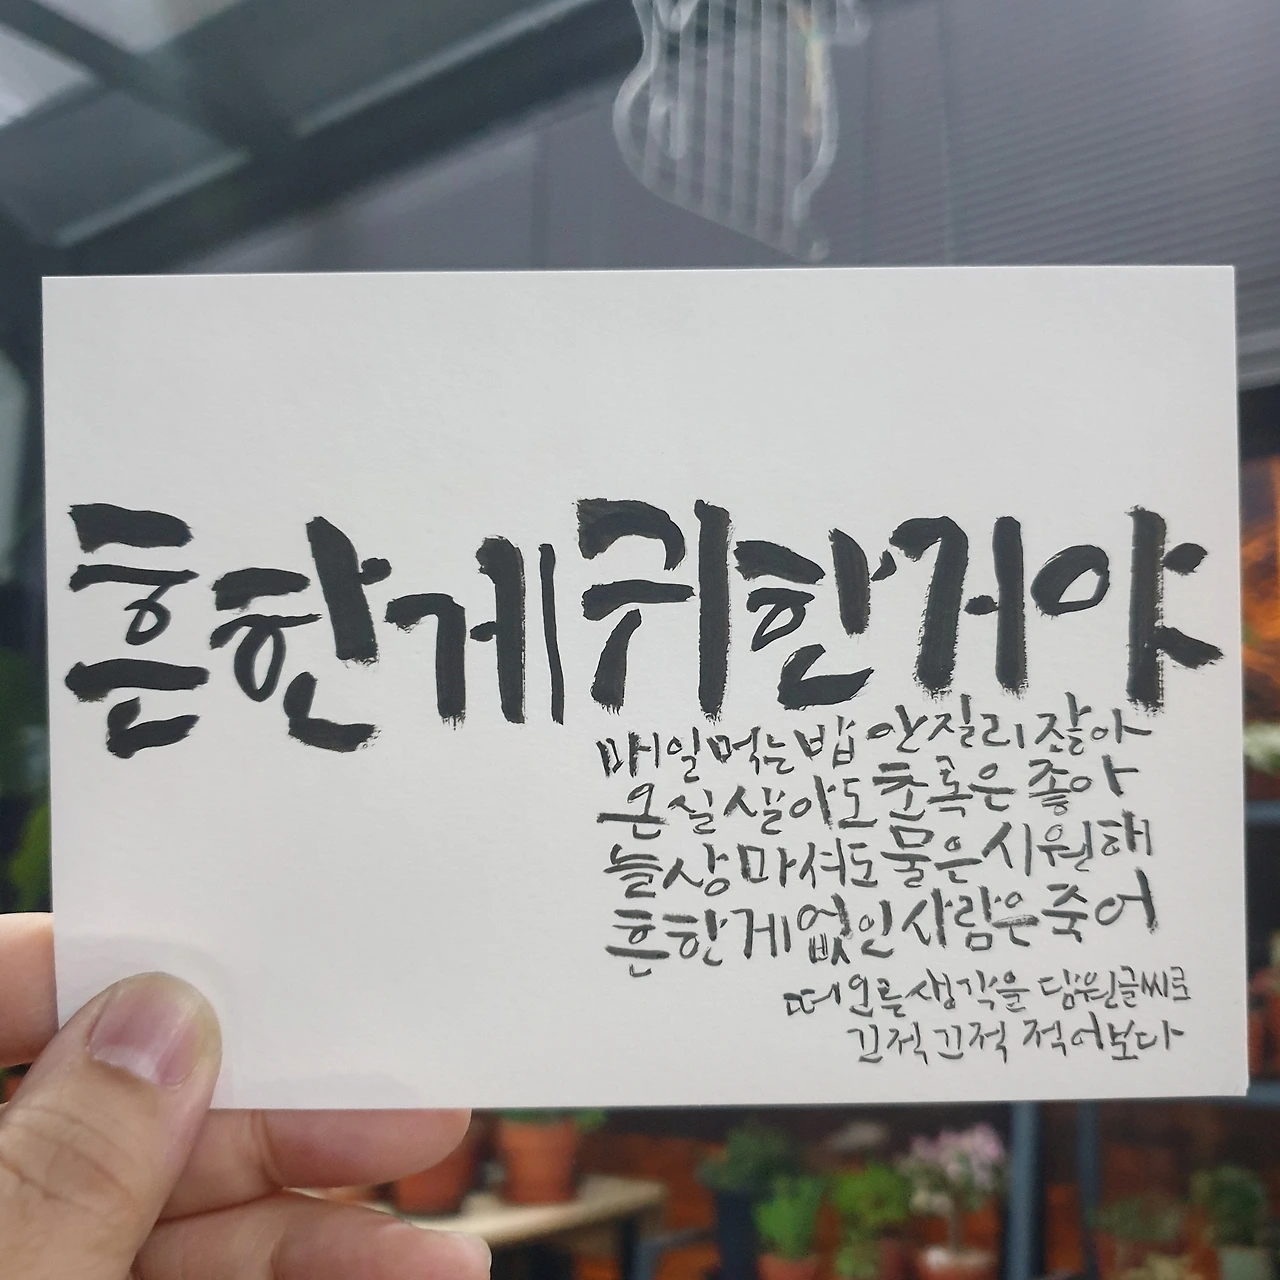 흔한게 귀한거야
매일 먹는 밥 안 질리잖아
온실 살아도 초록은 좋아
늘상 마셔도 물은 시원해
흔한게 없인 사람은 죽어
떠오른 생각을 담원글씨로
끄적끄적 적어보다